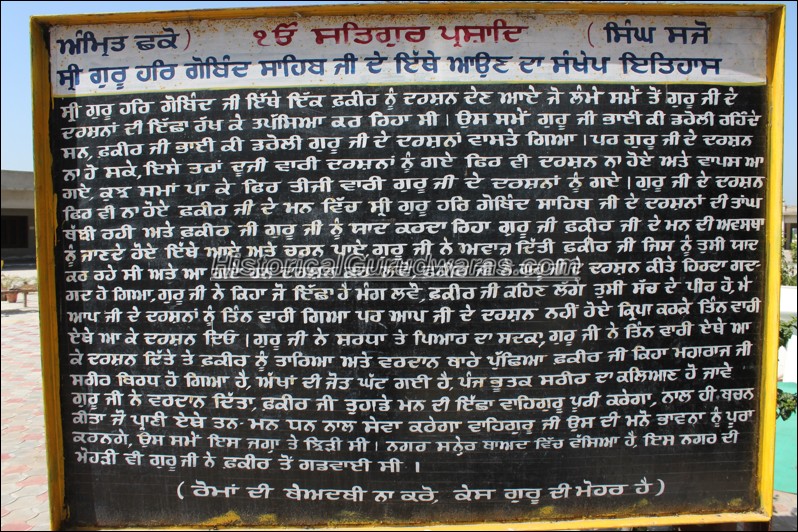 ਅੰਮ੍ਰਿਤ ਛਕੋ ) ੴ ਸਤਿਗੁਰ ਪ੍ਰਸਾਦਿ ( ਸਿੰਘ ਸਜੋ
ਸ੍ਰੀ ਗੁਰੂ ਹਰਿ ਗੋਬਿੰਦ ਸਾਹਿਬ ਜੀ ਦੇ ਇੱਥੇ ਆਉਣ ਦਾ ਸੰਖੇਪ ਇਤਿਹਾਸ
ਸ੍ਰੀ ਗੁਰੂ ਹਰਿ ਗੋਬਿੰਦ ਜੀ ਇੱਥੇ ਇੱਕ ਫ਼ਕੀਰ ਨੂੰ ਦਰਸ਼ਨ ਦੇਣ ਆਏ ਜੋ ਲੰਮੇ ਸਮੇਂ ਤੋਂ ਗੁਰੂ ਜੀ ਦੇ
ਦਰਸ਼ਨਾਂ ਦੀ ਇੱਛਾ ਰੱਖ ਕੇ ਤਪੱਸਿਆ ਕਰ ਰਿਹਾ ਸੀ। ਉਸ ਸਮੇਂ ਗੁਰੂ ਜੀ ਭਾਈ ਕੀ ਡਰੋਲੀ ਰਹਿੰਦੇ
ਸਨ, ਫ਼ਕੀਰ ਜੀ ਭਾਈ ਕੀ ਡਰੋਲੀ ਗੁਰੂ ਜੀ ਦੇ ਦਰਸ਼ਨਾਂ ਵਾਸਤੇ ਗਿਆ। ਪਰ ਗੁਰੂ ਜੀ ਦੇ ਦਰਸ਼ਨ
ਨਾ ਹੋ ਸਕੇ, ਇਸੇ ਤਰਾਂ ਦੂਜੀ ਵਾਰੀ ਦਰਸ਼ਨਾਂ ਨੂੰ ਗਏ ਫਿਰ ਵੀ ਦਰਸ਼ਨ ਨਾ ਹੋਏ ਅਤੇ ਵਾਪਸ ਆ
ਗਏ, ਕੁਝ ਸਮਾਂ ਪਾ ਕੇ ਫਿਰ ਤੀਜੀ ਵਾਰੀ ਗੁਰੂ ਜੀ ਦੇ ਦਰਸ਼ਨਾਂ ਨੂੰ ਗਏ। ਗੁਰੂ ਜੀ ਦੇ ਦਰਸ਼ਨ
ਫਿਰ ਵੀ ਨਾ ਹੋਏ, ਫ਼ਕੀਰ ਜੀ ਦੇ ਮਨ ਵਿੱਚ ਸ੍ਰੀ ਗੁਰੂ ਹਰਿ ਗੋਬਿੰਦ ਸਾਹਿਬ ਜੀ ਦੇ ਦਰਸ਼ਨਾਂ ਦੀ ਤਾਂਘ
ਬੱਝੀ ਰਹੀ ਅਤੇ ਫ਼ਕੀਰ ਜੀ ਗੁਰੂ ਜੀ ਨੂੰ ਯਾਦ ਕਰਦਾ ਰਿਹਾ, ਗੁਰੂ ਜੀ ਫ਼ਕੀਰ ਜੀ ਦੇ ਮਨ ਦੀ ਅਵਸਥਾ
ਨੂੰ ਜਾਣਦੇ ਹੋਏ ਇੱਥੇ ਆਏ ਅਤੇ ਚਰਨ ਪਾਏ, ਗੁਰੂ ਜੀ ਨੇ ਅਵਾਜ਼ ਦਿੱਤੀ ਫ਼ਕੀਰ ਜੀ ਜਿਸ ਨੂੰ ਤੁਸੀ ਯਾਦ
ਕਰ ਰਹੇ ਸੀ ਅਤੇ ਆ HistoricalGurudwaras.com ਦੇ ਦਰਸ਼ਨ ਕੀਤੇ ਹਿਰਦਾ ਗਦ-
ਗਦ ਹੋ ਗਿਆ, ਗੁਰੂ ਜੀ ਨੇ ਕਿਹਾ ਜੋ ਇੱਛਾ ਹੈ ਮੰਗ ਲਵੋ, ਫ਼ਕੀਰ ਜੀ ਕਹਿਣ ਲੱਗੇ ਤੁਸੀ ਸੱਚ ਦੇ ਪੀਰ ਹੋ, ਮੈਂ
ਆਪ ਜੀ ਦੇ ਦਰਸ਼ਨਾਂ ਨੂੰ ਤਿੰਨ ਵਾਰੀ ਗਿਆ ਪਰ ਆਪ ਜੀ ਦੇ ਦਰਸ਼ਨ ਨਹੀਂ ਹੋਏ ਕ੍ਰਿਪਾ ਕਰਕੇ ਤਿੰਨ ਵਾਰੀ
ਏਥੇ ਆ ਕੇ ਦਰਸ਼ਨ ਦਿਓ। ਗੁਰੂ ਜੀ ਨੇ ਸ਼ਰਧਾ ਤੇ ਪਿਆਰ ਦਾ ਸਦਕਾ, ਗੁਰੂ ਜੀ ਨੇ ਤਿੰਨ ਵਾਰੀ ਏਥੇ ਆ
ਕੇ ਦਰਸ਼ਨ ਦਿੱਤੇ ਤੇ ਫ਼ਕੀਰ ਨੂੰ ਤਾਰਿਆ ਅਤੇ ਵਰਦਾਨ ਬਾਰੇ ਪੁੱਛਿਆ ਫ਼ਕੀਰ ਜੀ ਕਿਹਾ ਮਹਾਰਾਜ ਜੀ
ਸਰੀਰ ਬਿਰਧ ਹੋ ਗਿਆ ਹੈ, ਅੱਖਾਂ ਦੀ ਜੋਤ ਘੱਟ ਗਈ ਹੈ, ਪੰਜ ਭੂਤਕ ਸਰੀਰ ਦਾ ਕਲਿਆਣ ਹੋ ਜਾਵੇ
ਗੁਰੂ ਜੀ ਨੇ ਵਰਦਾਨ ਦਿੱਤਾ, ਫ਼ਕੀਰ ਜੀ ਤੁਹਾਡੇ ਮਨ ਦੀ ਇੱਛਾ ਵਾਹਿਗੁਰੂ ਪੂਰੀ ਕਰੇਗਾ, ਨਾਲ ਹੀ ਬਚਨ
ਕੀਤਾ ਜੋ ਪ੍ਰਾਣੀ ਏਥੇ ਤਨ ਮਨ ਧਨ ਨਾਲ ਸੇਵਾ ਕਰੇਗਾ ਵਾਹਿਗੁਰੂ ਜੀ ਉਸ ਦੀ ਮਨੋ ਭਾਵਨਾ ਨੂੰ ਪੂਰਾ
ਕਰਨਗੇ, ਉਸ ਸਮੇਂ ਇਸ ਜਗ੍ਹਾ ਤੇ ਝਿੜੀ ਸੀ। ਨਗਰ ਸਨ੍ਹੇਰ ਬਾਅਦ ਵਿੱਚ ਵੱਸਿਆ ਹੈ, ਇਸ ਨਗਰ ਦੀ
ਮੋਹੜੀ ਵੀ ਗੁਰੂ ਜੀ ਨੇ ਫ਼ਕੀਰ ਤੋਂ ਗਡਵਾਈ ਸੀ।
(ਰੋਮਾਂ ਦੀ ਬੇਅਦਬੀ ਨਾ ਕਰੋ, ਕੇਸ ਗੁਰੂ ਦੀ ਮੋਹਰ ਹੈ)